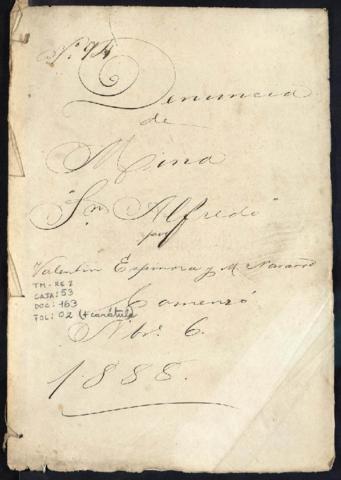 Nº 94
Denuncia
de
Mina
"Sn Alfredo"
por
Valentin Espinoza y M. Navarro
TM-RE 2
CAJA: 53
DOC: 163
FOL: 02 (+ carátula)
Comenzó
Nbre 6.
1888.